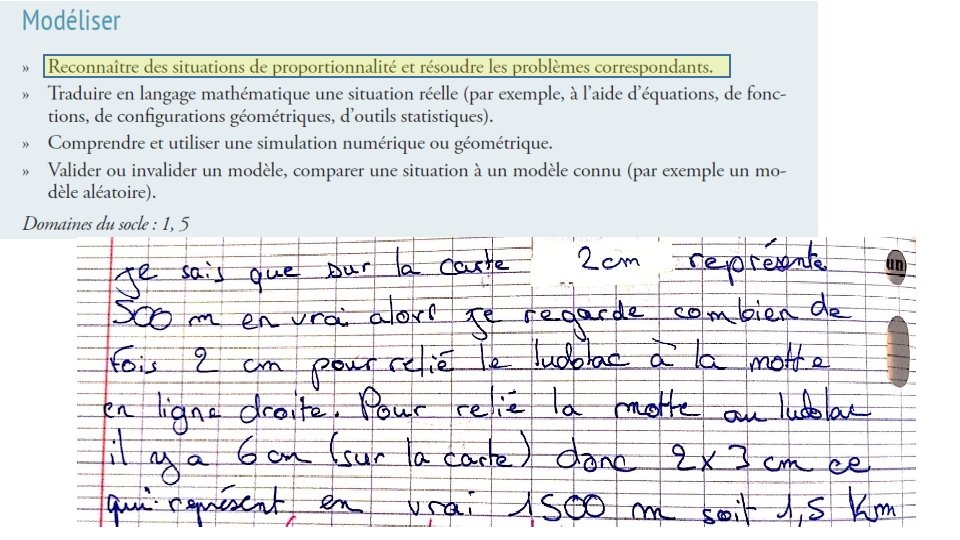 Modéliser
» Reconnaître des situations de proportionnalité et résoudre les problèmes correspondants.
» Traduire en langage mathématique une situation réelle (par exemple, à l'aide d'équations, de fonc-
tions, de configurations géométriques, d'outils statistiques).
» Comprendre et utiliser une simulation numérique ou géométrique.
» Valider ou invalider un modèle, comparer une situation à un modèle connu (par exemple un mo-
dèle aléatoire).
Domaines du socle : 1, 5
je sais que sur la carte 2cm représente un
500 m en vrai alors je regarde combien de
fois 2 cm pour relié le ludolac à la motte
en ligne droite. Pour relié la motte au ludolac
il y a 6 cm (sur la carte) donc 2x3 cm ce
qui représent en vrai 1500 m soit 1,5 Km